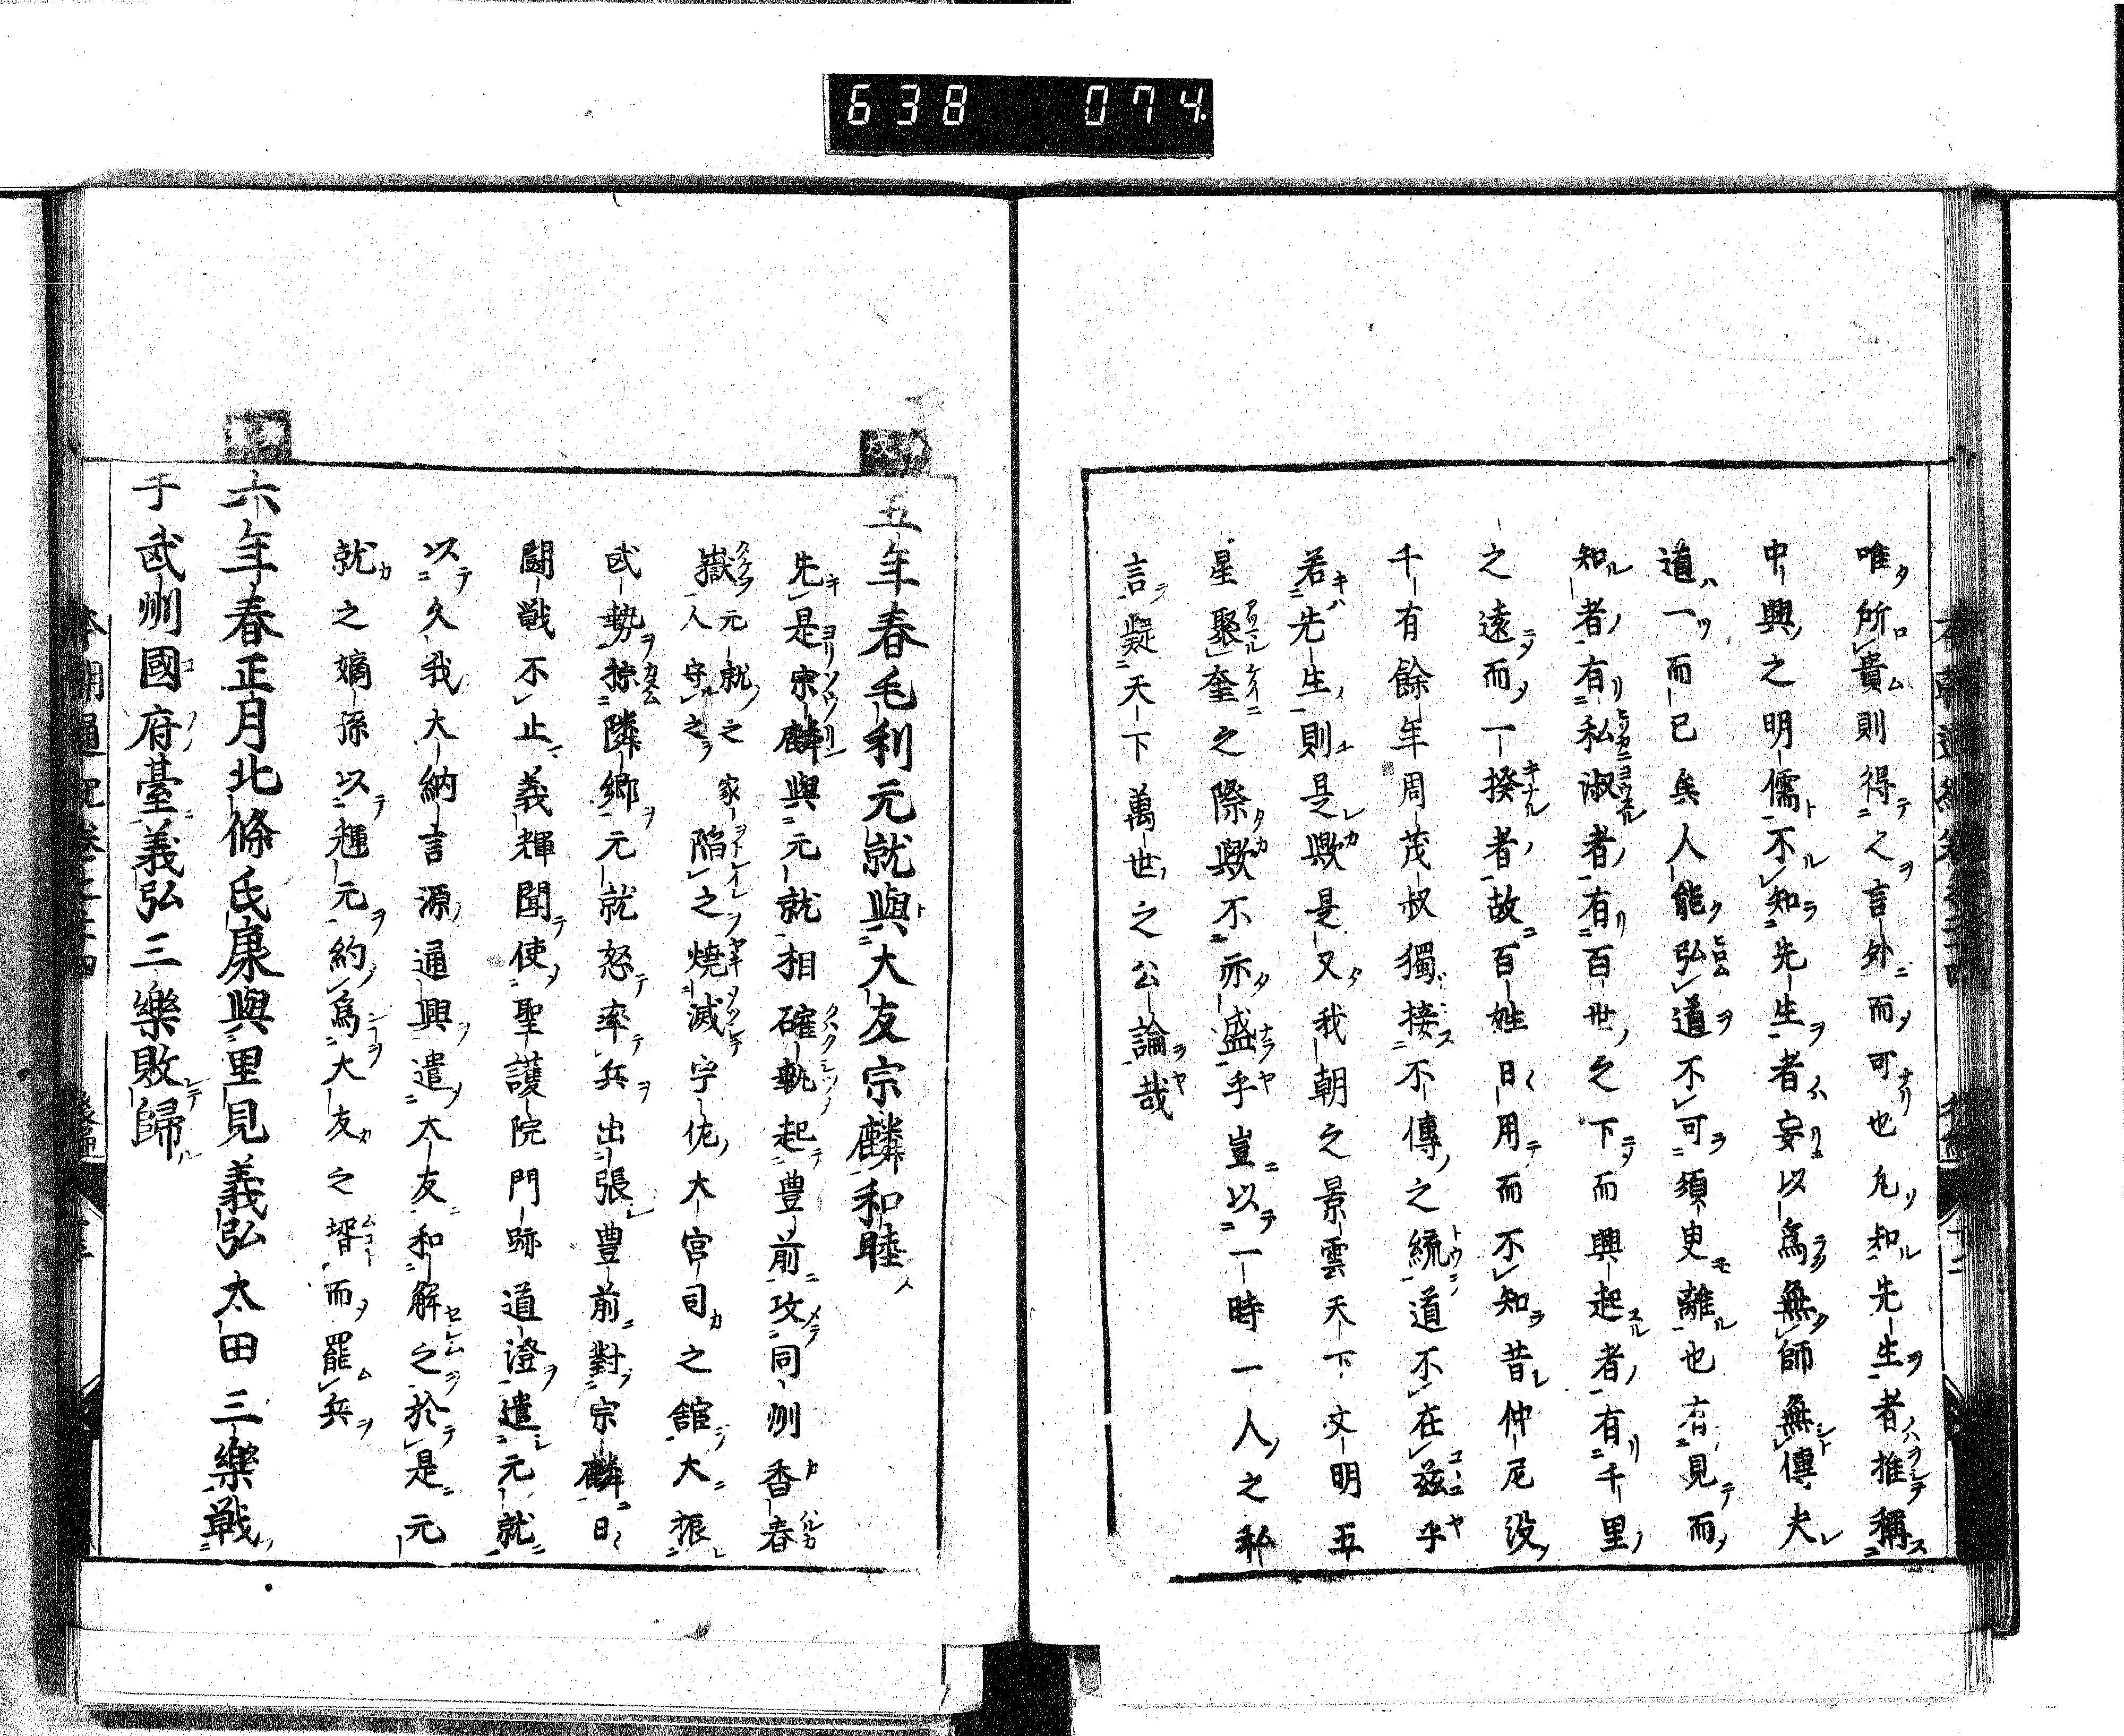 638 074
唯所貴則得之言外而可也凡知先生者推稱
中興之明儒不知先生者妄以爲無師無傳夫
道一而已矣人能弘道不可須臾離也有見而
知者有私淑者有百世之下而興起者有千里
之遠而一揆者故百姓日用而不知昔仲尼没
千有餘年周茂叔獨接不傳之統道不在茲乎
若先生則是歟是又我朝之景雲天下文明五
星聚奎之際歟不亦盛乎豈以一時一人之私
言疑天下萬世之公論哉
五年春毛利元就與大友宗麟和睦
先是宗麟與元就相確執起豊前攻同州香春
嶽元就之家人守之陷之燒滅宇佐大宮司之館大振
武勢掠隣郷元就怒率兵出張豊前對宗麟日
鬪戰不止義輝聞使聖護院門跡道澄遣元就
以久我大納言源通興遣大友和解之於是元
就之嫡孫以輝元約爲大友之壻而罷兵
六年春正月北條氏康與里見義弘太田三樂戰
于武州國府臺義弘三樂敗歸